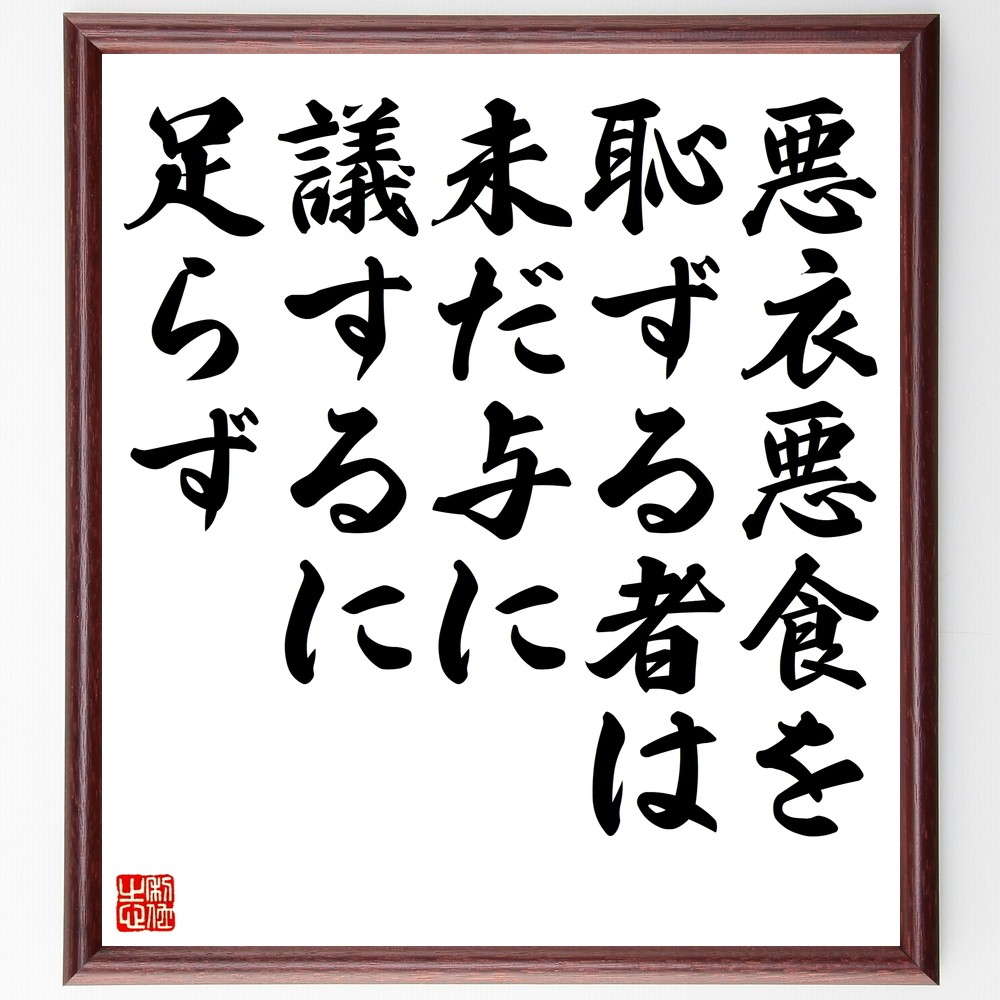 悪衣悪食を
恥ずる者は
未だ与に
議するに
足らず